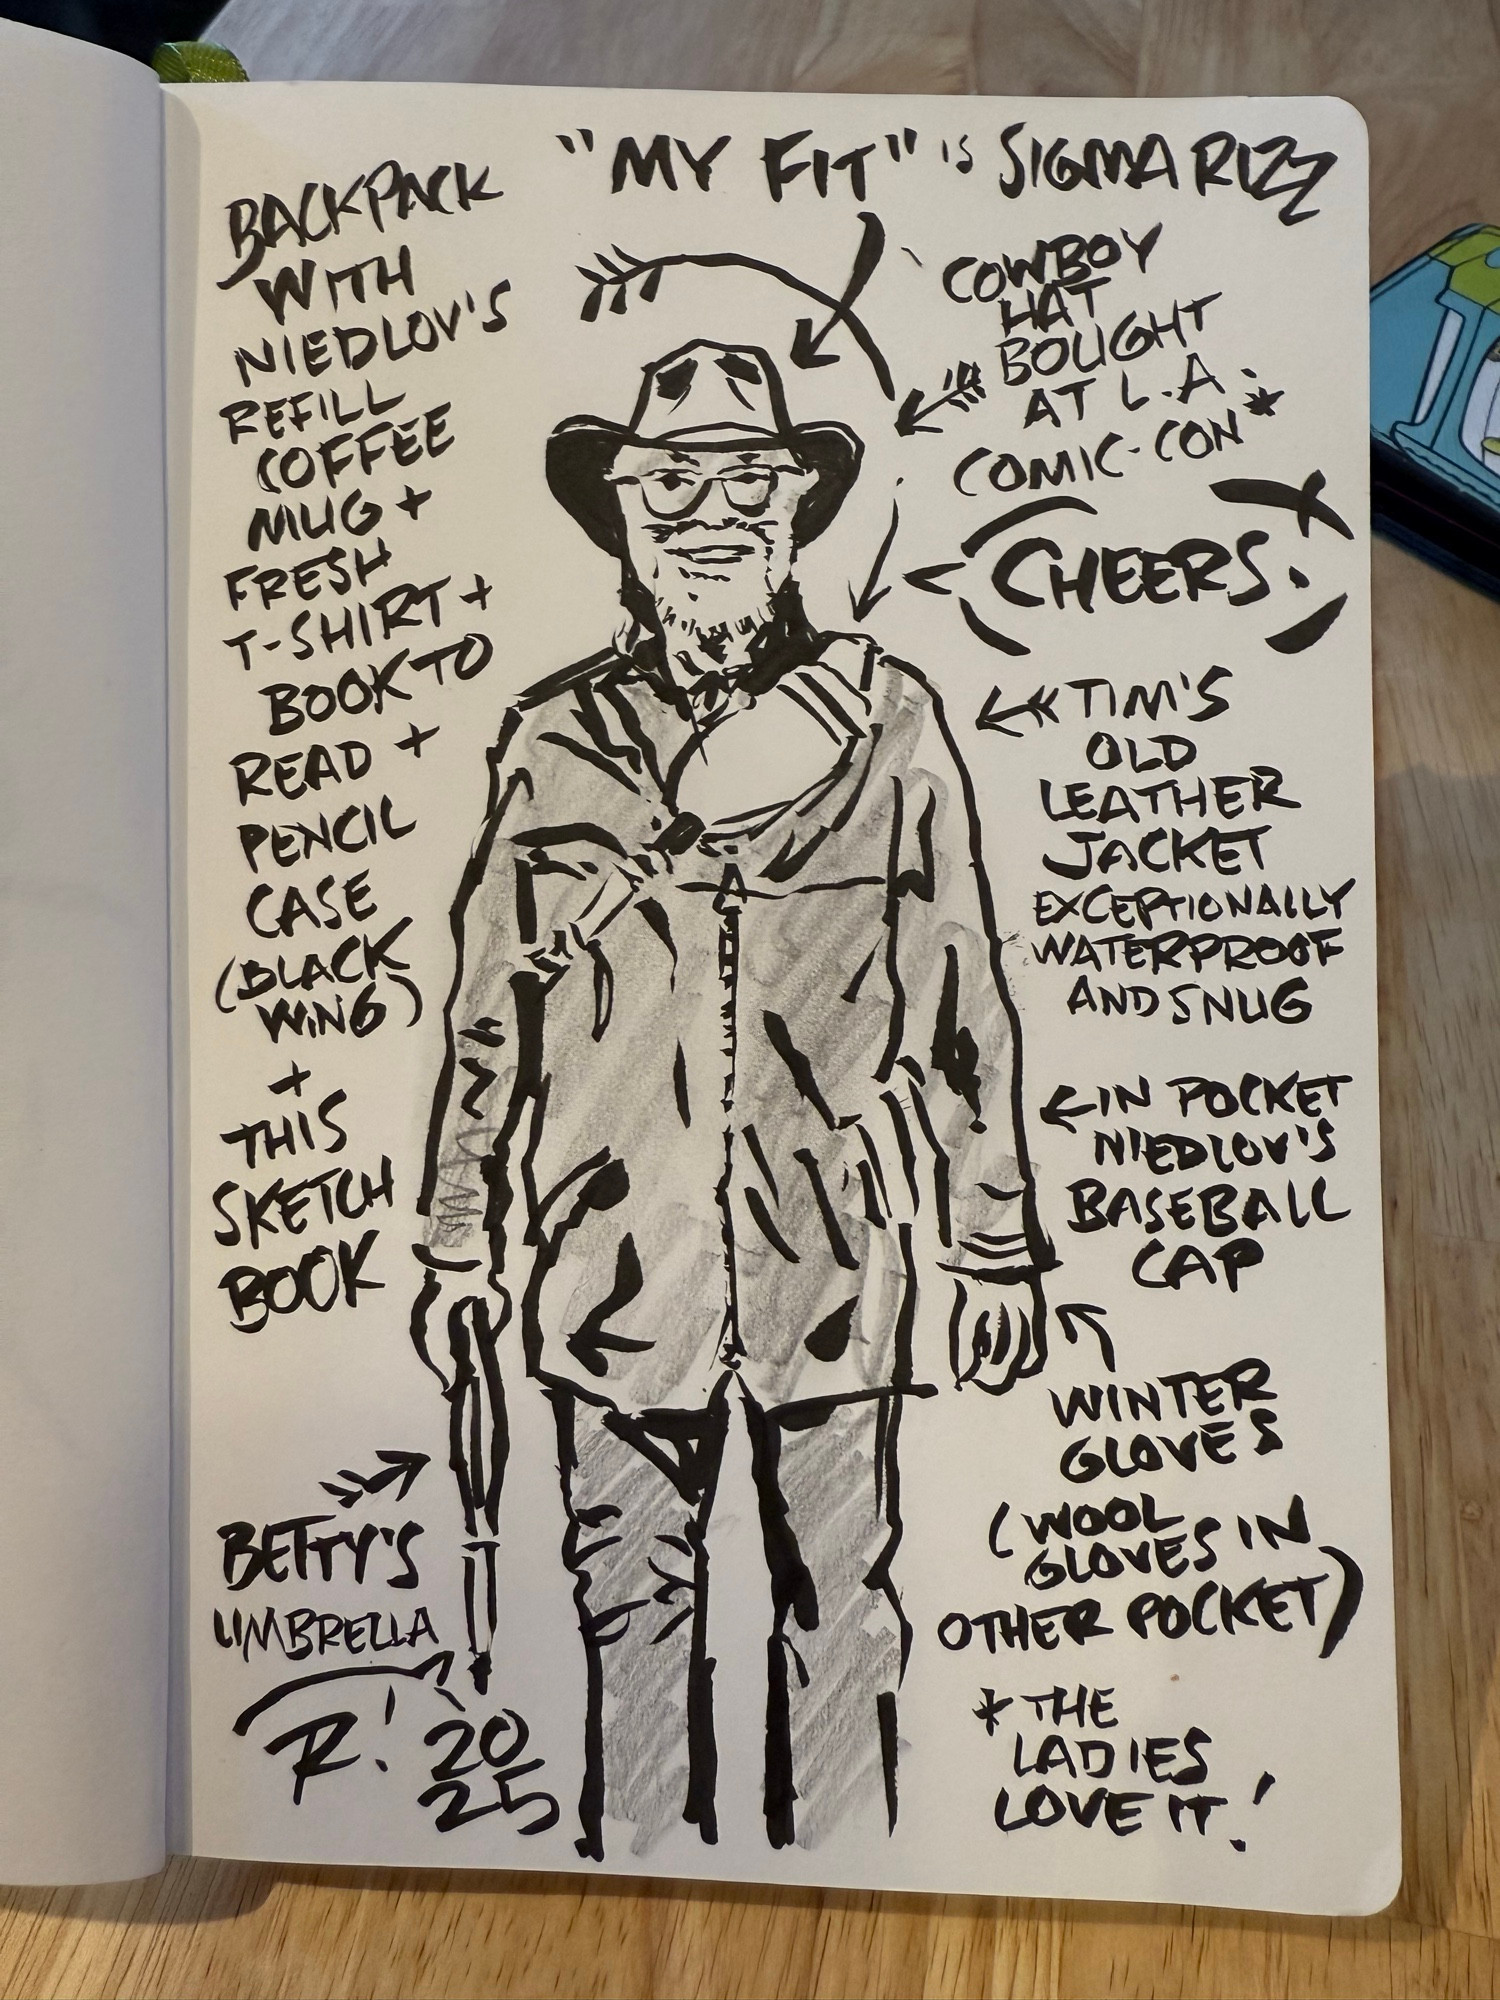 "MY FIT" IS SIGMA RIZZ
BACKPACK
WITH
NIEDLOV'S
REFILL
COFFEE
MUG +
FRESH
T-SHIRT +
BOOK TO
READ +
PENCIL
CASE
(BLACK
WING)
+
THIS
SKETCH
BOOK
BETTY'S
UMBRELLA
R! 20
25
COWBOY
HAT
BOUGHT
AT L.A.
COMIC-CON*
(CHEERS.)
TIM'S
OLD
LEATHER
JACKET
EXCEPTIONALLY
WATERPROOF
AND SNUG
IN POCKET
NIEDLOV'S
BASEBALL
CAP
WINTER
GLOVES
(WOOL
GLOVES IN
OTHER POCKET)
* THE
LADIES
LOVE IT!